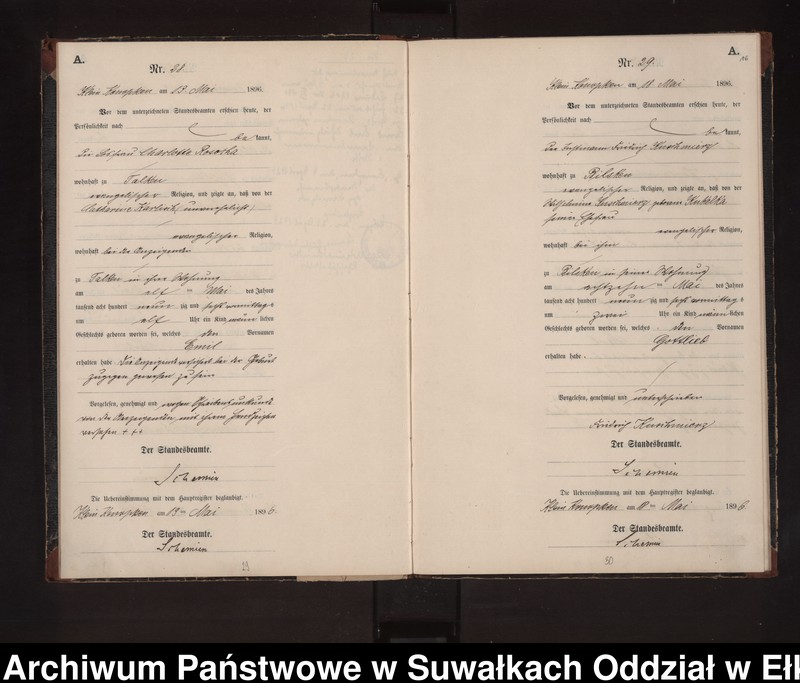 A.
Nr. 28.
Klein Konopken am 13. Mai 1896.
Vor dem unterzeichneten Standesbeamten erschien heute, der
Persönlichkeit nach
be kannt,
Die Charlotte
wohnhaft zu Talken
evangelischer Religion, und zeigte an, daß von der
Catharine unverehelicht,
evangelischer Religion,
wohnhaft bei der Anzeigenden
zu Talken in ihrer Wohnung
am elf ten Mai des Jahres
tausend acht hundert neun zig und sechs vormittags
um elf Uhr ein Kind männ lichen
Geschlechts geboren worden sei, welches den Vornamen
Emil
erhalten habe. Die Anzeigende versichert bei der Geburt
zugegen gewesen zu sein
Vorgelesen, genehmigt und wegen Schreibensunkunde
von der Anzeigenden mit ihrem Handzeichen
versehen + + +
Der Standesbeamte.
Schemien
Die Uebereinstimmung mit dem Hauptregister beglaubigt.
Klein Konopken am 13ten Mai 1896.
Der Standesbeamte.
Schemien
A.
Nr. 29.
Klein Konopken am 18 Mai 1896.
Vor dem unterzeichneten Standesbeamten erschien heute, der
Persönlichkeit nach
be kannt,
Der Friedrich Kuschmierz
wohnhaft zu Pilsken
evangelischer Religion, und zeigte an, daß von der
Wilhelmine Kuschmierz geborene
seiner Ehefrau
evangelischer Religion,
wohnhaft bei ihm
zu Pilsken in seiner Wohnung
am achtzehn ten Mai des Jahres
tausend acht hundert neun zig und sechs vormittags
um zwei Uhr ein Kind männ lichen
Geschlechts geboren worden sei, welches den Vornamen
Gottlieb
erhalten habe.
Vorgelesen, genehmigt und unterschrieben
Friedrich Kuschmierz
Der Standesbeamte.
Schemien
Die Uebereinstimmung mit dem Hauptregister beglaubigt.
Klein Konopken am 18ten Mai 1896.
Der Standesbeamte.
Schemien
30
Archiwum Państwowe w Suwałkach Oddział w Ełk